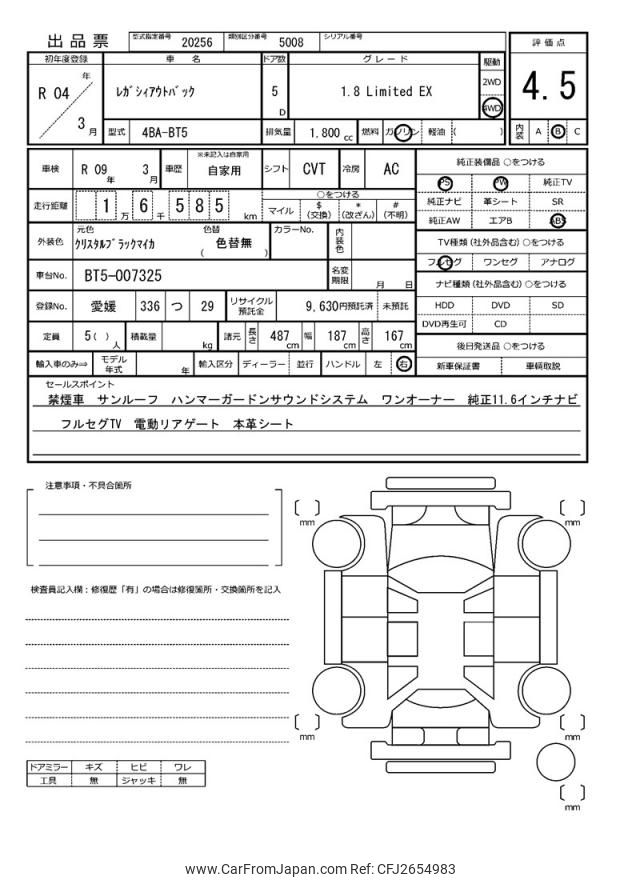 出品票 型式指定番号 20256 類別区分番号 5008 シリアル番号
評価点
4.5
内装 A B C
初年度登録 車名 ドア数 グレード 駆動
R 04 年 3 月
ﾚｶﾞｼｨｱｳﾄﾊﾞｯｸ 5 D 1.8 Limited EX
2WD
4WD
型式 4BA-BT5 排気量 1.800 cc 燃料 ガソリン 軽油 ( )
車検 R 09 年 3 月 車歴 ※未記入は自家用 自家用 シフト CVT 冷房 AC
走行距離 1 万 6 千 5 8 5 km
○をつける
マイル $ (交換) * (改ざん) # (不明)
外装色 元色 ｸﾘｽﾀﾙﾌﾞﾗｯｸﾏｲｶ 色替 ( 色替無 ) カラーNo. 内装色
車台No. BT5-007325 名変期限 月 日
登録No. 愛媛 336 つ 29 リサイクル預託金 9,630円預託済 未預託
定員 5( ) 人 積載量 kg 諸元 長さ 487 cm 幅 187 cm 高さ 167 cm
輸入車のみ⇒ モデル年式 年 輸入区分 ディーラー 並行 ハンドル 左 右
純正装備品 ○をつける
PS PW 純正TV
純正ナビ 革シート SR
純正AW エアB ABS
TV種類 (社外品含む) ○をつける
フルセグ ワンセグ アナログ
ナビ種類 (社外品含む) ○をつける
HDD DVD SD
DVD再生可 CD
後日発送品 ○をつける
新車保証書 車輌取説
セールスポイント
禁煙車 サンルーフ ハンマーガードンサウンドシステム ワンオーナー 純正11.6インチナビ
フルセグTV 電動リアゲート 本革シート
注意事項・不具合箇所
検査員記入欄：修復歴「有」の場合は修復箇所・交換箇所を記入
ドアミラー キズ ヒビ ワレ
工具 無 ジャッキ 無
[ ] mm
[ ] mm
[ ] mm
[ ] mm
[ ] mm
www.CarFromJapan.com Ref: CFJ2654983